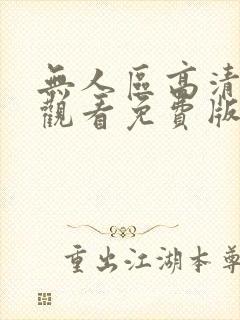 無人區高清
觀看免費版
重出江湖本尊